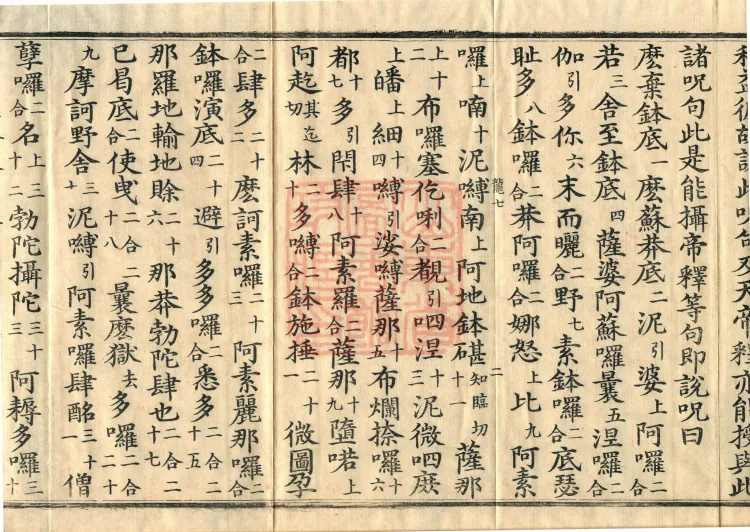 諸呪句此是能攝帝釋等句即說呪曰
麽棄鉢底一麽蘇莽底二泥引婆上阿囉二合
若三舍至鉢底四薩婆阿蘇囉曩五涅囉二合
伽引多你六末而曬二合野七素鉢囉二合底瑟
耻多八鉢囉二合莽阿囉二合娜怒上比九阿素
龍七 二
囉上喃十泥縛南上阿地鉢碪甚知臨切十一薩那
二上十布囉塞仡唎二合覩引呬涅十三泥微呬庪
上皤上細十四嚩引娑嚩薩那十五布爛捺囉十六
都十七多引閇肆十八阿素羅二合薩那十九隨喏上
阿趁其迄切林二十多嚩二合鉢施捶二十一微圖孕
二合肆多二十二麽訶素囉二十三阿素麗那囉二合
鉢囉演底二十四避引多多囉二合悉多二合二十五
那羅地輸地賒二十六那莽勃陀肆也二合二十七
巳曷底二合使曳二合二十八曩麽獄去多囉二合二十
九摩訶野舍三十泥嚩引阿素囉肆酩三十一僧
孽囉二合名上三十二勃陀攝陀三十三阿耨多囉三十